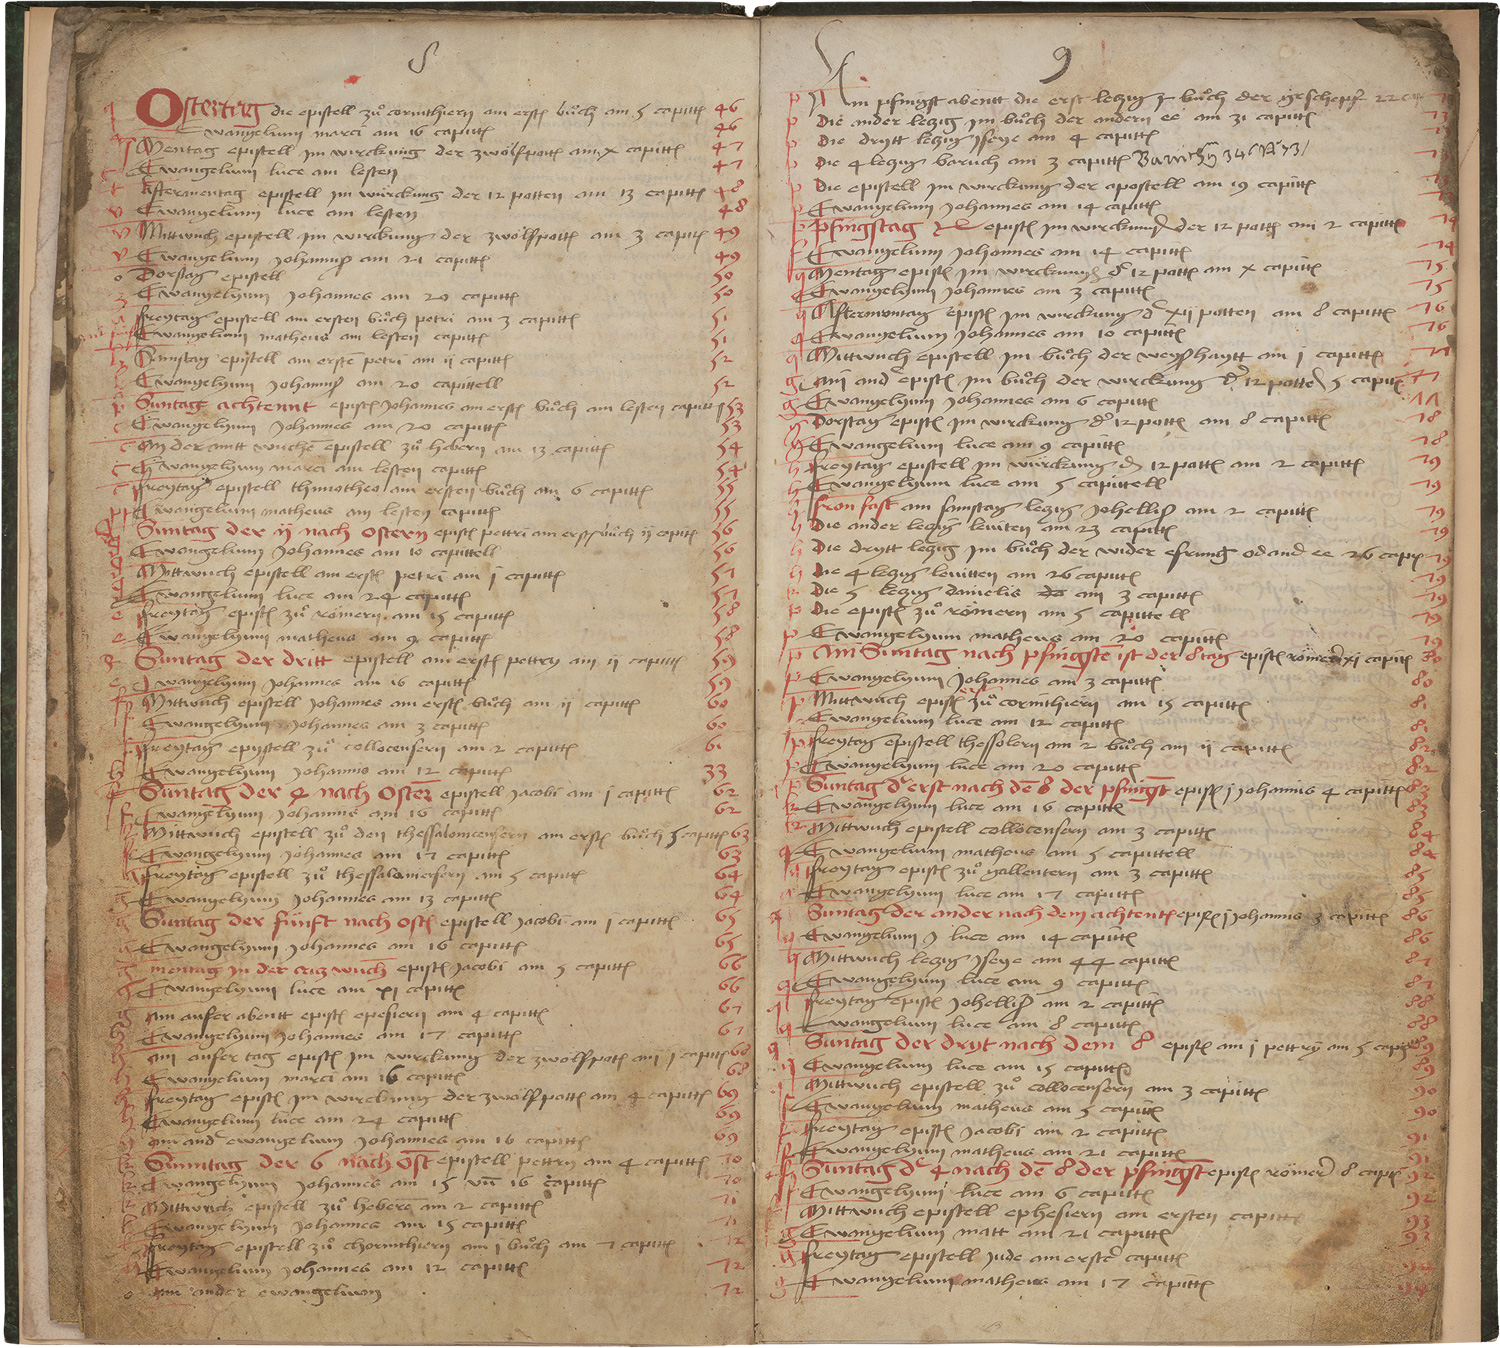 Ostertag die epistell zů corinthiern am ersten bůch am 5 capittel 46
Ewangelium marci am 16 capittel 46
Mentag epistell im wirckung der zwölfpotten am x capittel 47
Ewangelium luce am lesten 47
Aftermentag epistell im würckung der 12 potten am 13 capittel 48
Ewangelium luce am lesten 48
Mittwuch epistell im wirckung der zwölfpotten am 3 capittel 49
Ewangelium Johannes am 21 capittel 49
Dorstag epistell 50
Ewangelyum Johannes am 20 capittel 50
freytag epistell am ersten bůch petri am 3 capittel 51
Ewangelium matheus am lesten capittel 51
Samstag epistell am erste petri am ii capittel 52
Ewangelyum Johannes am 20 capittell 52
Suntag achtennt epistel Johannes am ersten bůch am lesten capittel 53
Ewangelyum Johannes am 20 capittel 53
An der mitt wuche epistell zů hebern am 13 capittel 54
Ewangelyum marci am lesten capittel 54
freytag epistell thimotheo am ersten bůch am 6 capittel 55
Ewangelium matheus am lesten capittel 55
Suntag der ij nach ostern epistel pettri am ersten bůch ij capittel 56
Ewangelium Johannes am 10 capittell 56
Mittwuch epistell am erstel petri am j capittel 57
Ewangelium luce am 24 capittel 57
freytag epistel zů römern am 15 capittel 58
Ewangelyum matheus am 9 capittel 58
Suntag der dritt epistell am erstel pettry am ij capittel 59
Ewangelyum Johannes am 16 capittel 59
Mittwuch epistell Johannes am ersten bůch am ij capittel 60
Ewangelyum Johannes am 3 capittel 60
freytag epystell zů collocensern am 2 capittel 61
Ewangelyum Johannes am 12 capittel 33
Suntag der 4 nach Oster epistell Jacobi am j capittel 62
Ewangelyum Johannes am 16 capittel 62
Mittwuch epistell zů den thessalonicensern am ersten bůch 5 capittel 63
Ewangelyum Johannes am 17 capittel 63
freytag epistell zů thessalonicensern am 5 capittel 64
Ewangelyum Johannes am 13 capittel 64
Suntag der fünfft nach osten epistell Jacobi am j capittel 65
Ewangelyum Johannes am 16 capittel 65
mentag in der creiz wuch epistel Jacobi am 5 capittel 66
Ewangelyum luce am xi capittel 66
Am aufer abentt epistel epesiern am 4 capittel 67
Ewangelium Johannes am 17 capittel 67
am aufer tag epistel im wirckung der zwölfpoten am j capittel 68
Ewangelium marci am 16 capittel 68
freytag epistel im wirckung der zwölfpotten am 4 capittel 69
Ewangelium luce am 24 capittel 69
am and ewangelium Johannes am 16 capittel 69
Sunntag der 6 nach Ost epistell pettry am 4 capittel 70
Ewangelyum Johannes am 15 vn 16 capittel 70
Mittwuch epistell zů hebere am 2 capittel 71
Ewangelyum Johannes am 15 capittel 71
freytag epistell zů chorinthiern am j bůch am 7 capittel 72
Ewangelyum Johannes am 12 capittel 72
am ander ewangelium 72
9
Am pfingst abentt die erst leczig j bůch der geschepf 22 cap
Die ander leczig im bůch der andern ee am 31 capittel
Die drytt leczig Jseye am 4 capittel
Die 4 leczig baruch am 3 capittel
Die epistell im wirckung der apostell am 19 capittel
Ewangelium Johannes am 14 capittel
Pfingstag epistel im wirckung der 12 potten am 2 capittel 74
Ewangelium Johannes am 14 capittel 74
Mentag epistel im wirckung d 12 potten am x capittel 75
Ewangelyum Johannes am 3 capittel 75
Aftermontag epistel im wirckung d xij potten am 8 capittel 76
Ewangelium Johannes am 10 capittel 76
Mittwuch epistell im bůch der weyshaytt am j capittel 77
am and epistel im bůch der wirckung d 12 potten 5 capittel 77
Ewangelyum Johannes am 6 capittel 77
Dorstag epistel im wirckung d 12 potten am 8 capittel 78
Ewangelium luce am 9 capittel 78
freytag epistell im würckung d 12 potten am 2 capittel 79
Ewangelyum luce am 5 capittell 79
fron fast am samstag leczig Johellis am 2 capittel 79
Die ander leczig leuiten am 23 capittel 79
Die drytt leczig im bůch der wider efrung od and ee 26 capittel 79
Die 4 leczig leuitten am 26 capittel 79
Die 5 leczig danielis am 3 capittel 79
Die epistel zů römern am 5 capittell 79
Ewangelyum matheus am 20 capittel 79
Am Suntag nach pfingste ist der 8 tag epistel römer xj capittel 80
Ewangelyum Johannes am 3 capittel 80
Mittwuch epistel zů corinthiern am 15 capittel 81
Ewangelium luce am 12 capittel 81
freytag epistell thessolern am 2 bůch am ij capittel 82
Ewangelium luce am 20 capittel 82
Suntag d erst nach de 8 der pfingst epistel j Johannis 4 capittel 83
Ewangelyum luce am 16 capittel 83
Mittwuch epistell collocensern am 3 capittel 84
Ewangelium matheus am 5 capittell 84
freytag epistel zů gallentern am 3 capittel 85
Ewangelyum luce am 17 capittel 85
Suntag der ander nach dem achtenten epistel j Johannis 3 capittel 86
Ewangelium luce am 14 capittel 86
Mittwuch leczig Jseye am 44 capittel 87
Ewangelyum luce am 9 capittel 87
freytag epistel Johellis am 2 capittel 88
Ewangelium luce am 8 capittel 88
Suntag der dryt nach dem 8 epistel am j pettry am 5 capittel 89
Ewangelium luce am 15 capittel 89
Mittwuch epistell zů collocensern am 3 capittel 90
Ewangelyum matheus am 5 capittel 90
freytag epistel Jacobi am 2 capittel 91
Ewangelyum matheus am 21 capittel 91
Suntag d 4 nach de 8 der pfingst epistel römer 8 capittel 92
Ewangelyum luce am 6 capittel 92
Mittwuch epistell ephesiern am ersten capittel 93
Ewangelium matt am 21 capittel 93
freytag epistell Jude am erste capittel 94
Ewangelyum matheus am 17 capittel 94